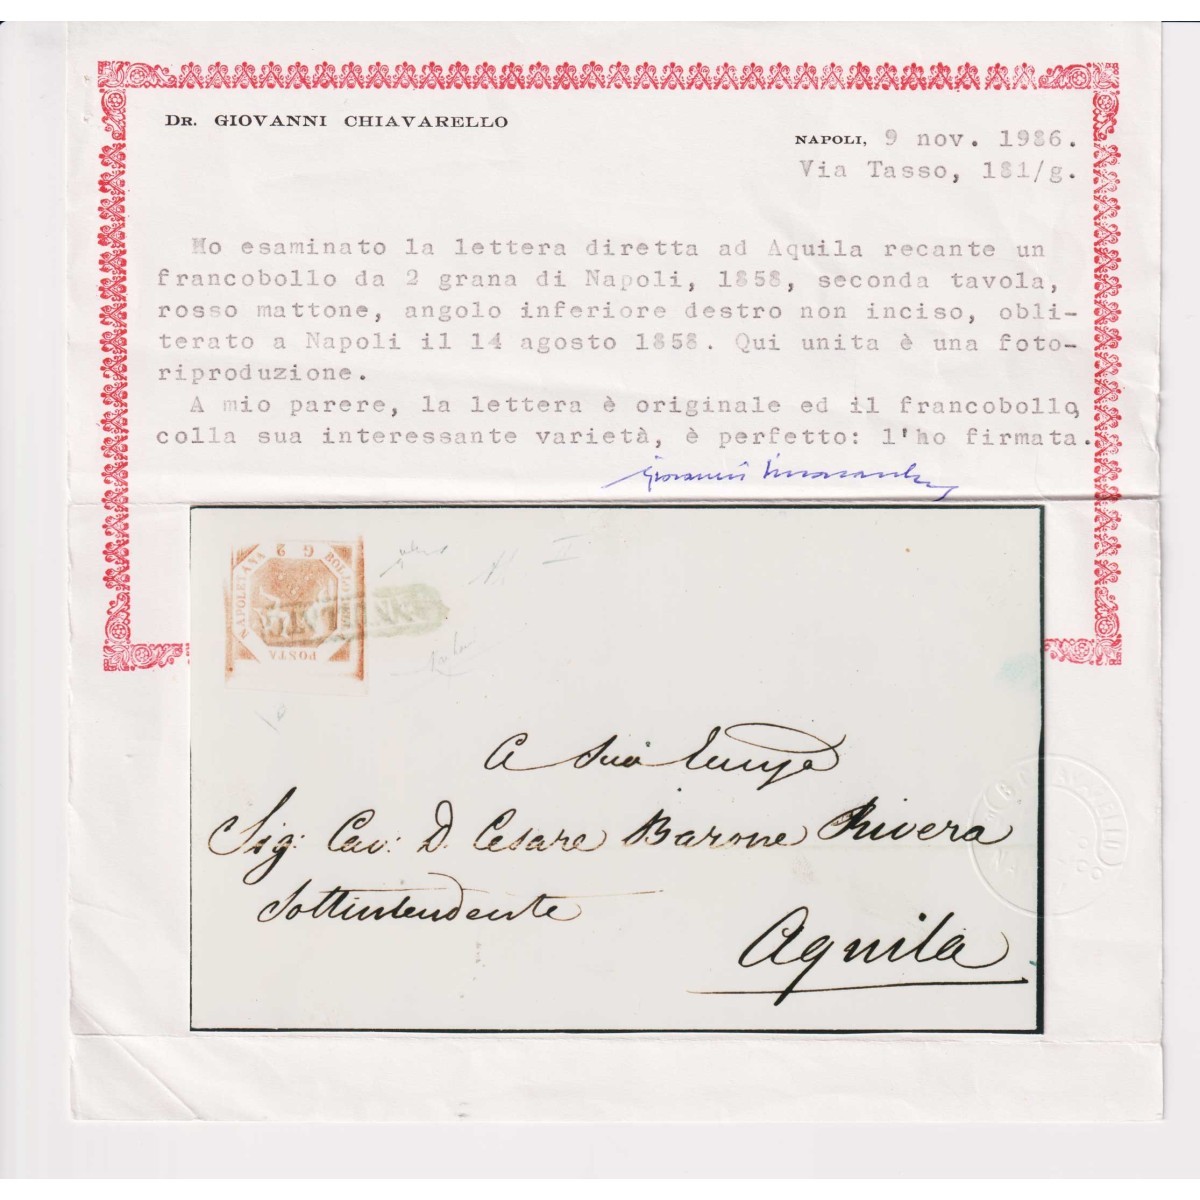 DR. GIOVANNI CHIAVARELLO
NAPOLI, 9 nov. 1986.
Via Tasso, 181/g.
Ho esaminato la lettera diretta ad Aquila recante un
francobollo da 2 grana di Napoli, 1858, seconda tavola,
rosso mattone, angolo inferiore destro non inciso, obli-
terato a Napoli il 14 agosto 1858. Qui unita è una foto-
riproduzione.
A mio parere, la lettera è originale ed il francobollo,
colla sua interessante varietà, è perfetto: l'ho firmata.
Giovanni
G 2
BOLLO
NAPOLETANA
POSTA
II
A Sua
Sig: Cav: D. Cesare Barone Rivera
Sottintendente
Aquila